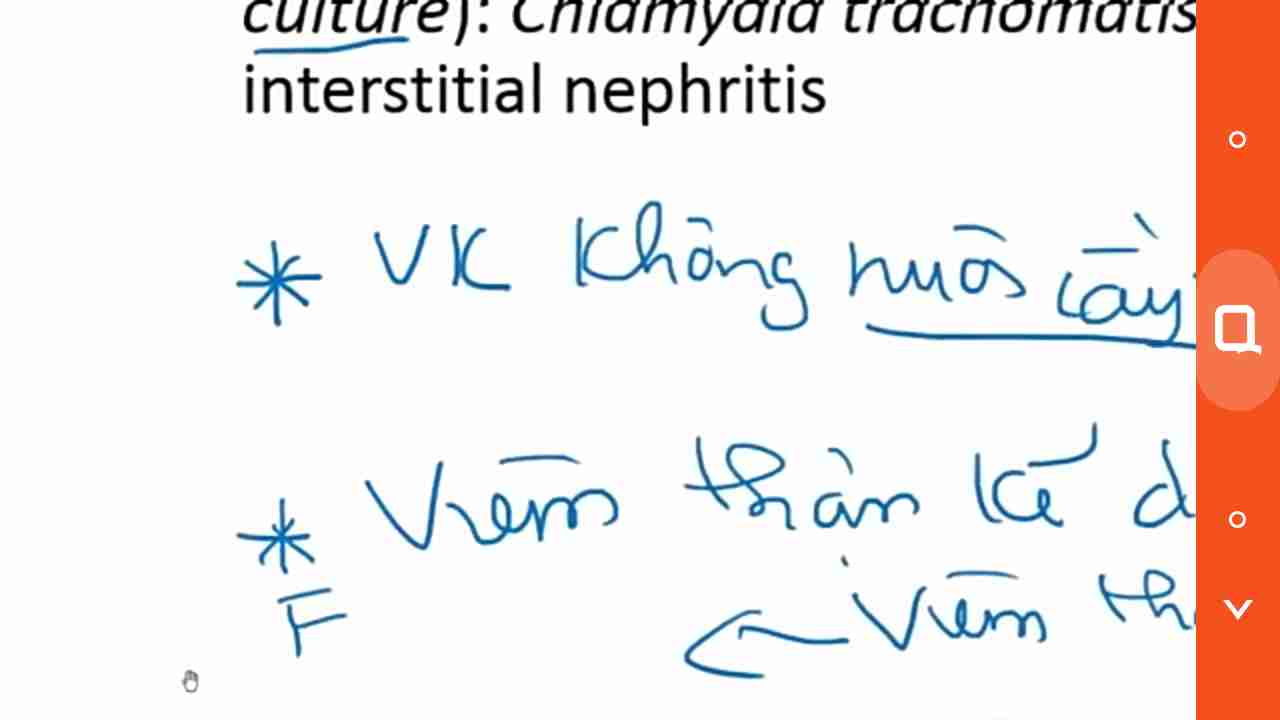 culture): Chlamydia trachomatis
interstitial nephritis
* VK không nuôi cấy
* Viêm thận kẽ d
F
Viêm th